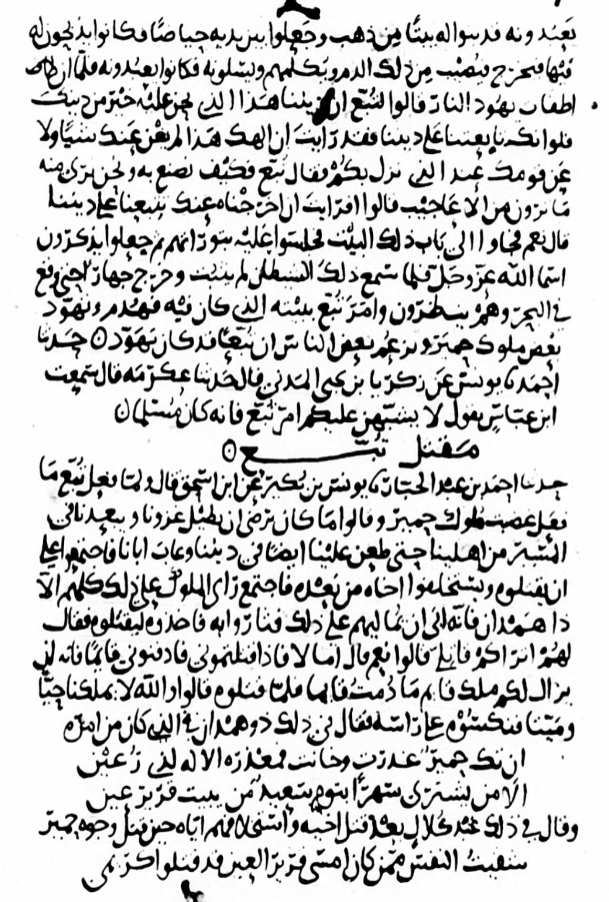 يعبدونه قد بنوا له بيتا من ذهب وجعلوا بين يديه حياضا فكانوا يذبحون له
فيها فيخرج فيصيب من ذلك الدم ويكلمهم ويسلونه فكانوا يعبدونه فلما ان
اطفات يهود النار قالوا لتبع ان ديننا هذا الذي نحن عليه خير من دينك
فلو انك تابعتنا على ديننا فقد رايت ان الهك هذا لم يغن عنك شيا ولا
عن قومك عند الذي نزل بكم فقال تبع فكيف نصنع به ونحن نرى منه
ما ترون من الاعاجيب قالوا افرايت ان اخرجناه عنك تتبعنا على ديننا
قال نعم فجاوا الى باب ذلك البيت فجلسوا عليه بتوراتهم ثم جعلوا يذكرون
اسما الله عز وجل فلما سمع ذلك الشيطان لم يثبت وخرج جهارا حتى وقع
في البحر وهم ينظرون وامر تبع ببيته الذي كان فيه فهدم وتهود
بعض ملوك حمير ويزعم بعض الناس ان تبعا قد كان تهود ○ حدثنا
احمد نا يونس عن زكريا بن يحيى المدني قال حدثنا عكرمة قال سمعت
ابن عباس يقول لا يشتبهن عليكم امر تبع فانه كان مسلما ن
مقتل تبع ○
حدثنا احمد بن عبد الجبار نا يونس بن بكير عن ابن اسحق قال ولما فعل تبع ما
فعل غضبت ملوك حمير وقالوا ما كان يرضى ان يطيل غزونا ويبعدنا في
المسير من اهلينا حتى طعن علينا ايضا في ديننا وعاب ابانا فاجتمعوا على
ان يقتلوه ويستخلفوا اخاه من بعده فاجتمع راى الملوك على ذلك كلهم الا
ذا همدان فانه ابى ان يماليهم على ذلك فثاروا به فاخذوه ليقتلوه فقال
لهم اتراكم قاتلي قالوا نعم قال اما لا فاذا قتلتموني فادفنوني قايما فانه لن
يزال لكم ملك قايم ما دمت قايما فلما قتلوه قالوا والله لا يملكنا حيا
وميتا فنكسوه على راسه فقال في ذلك ذو همدان في الذي كان من امره
ان تك حمير غدرت وخانت فمعذرة الاله لذي رعين
الا من يشتري سهرا بنوم سعيد من يبيت قرير عين
وقال في ذلك عبد كلال بعد قتل اخيه واستخلافهم اياه حين قتل وجوه حمير
شفيت النفس ممن كان امسى قرير العين قد قتلوا كريمي